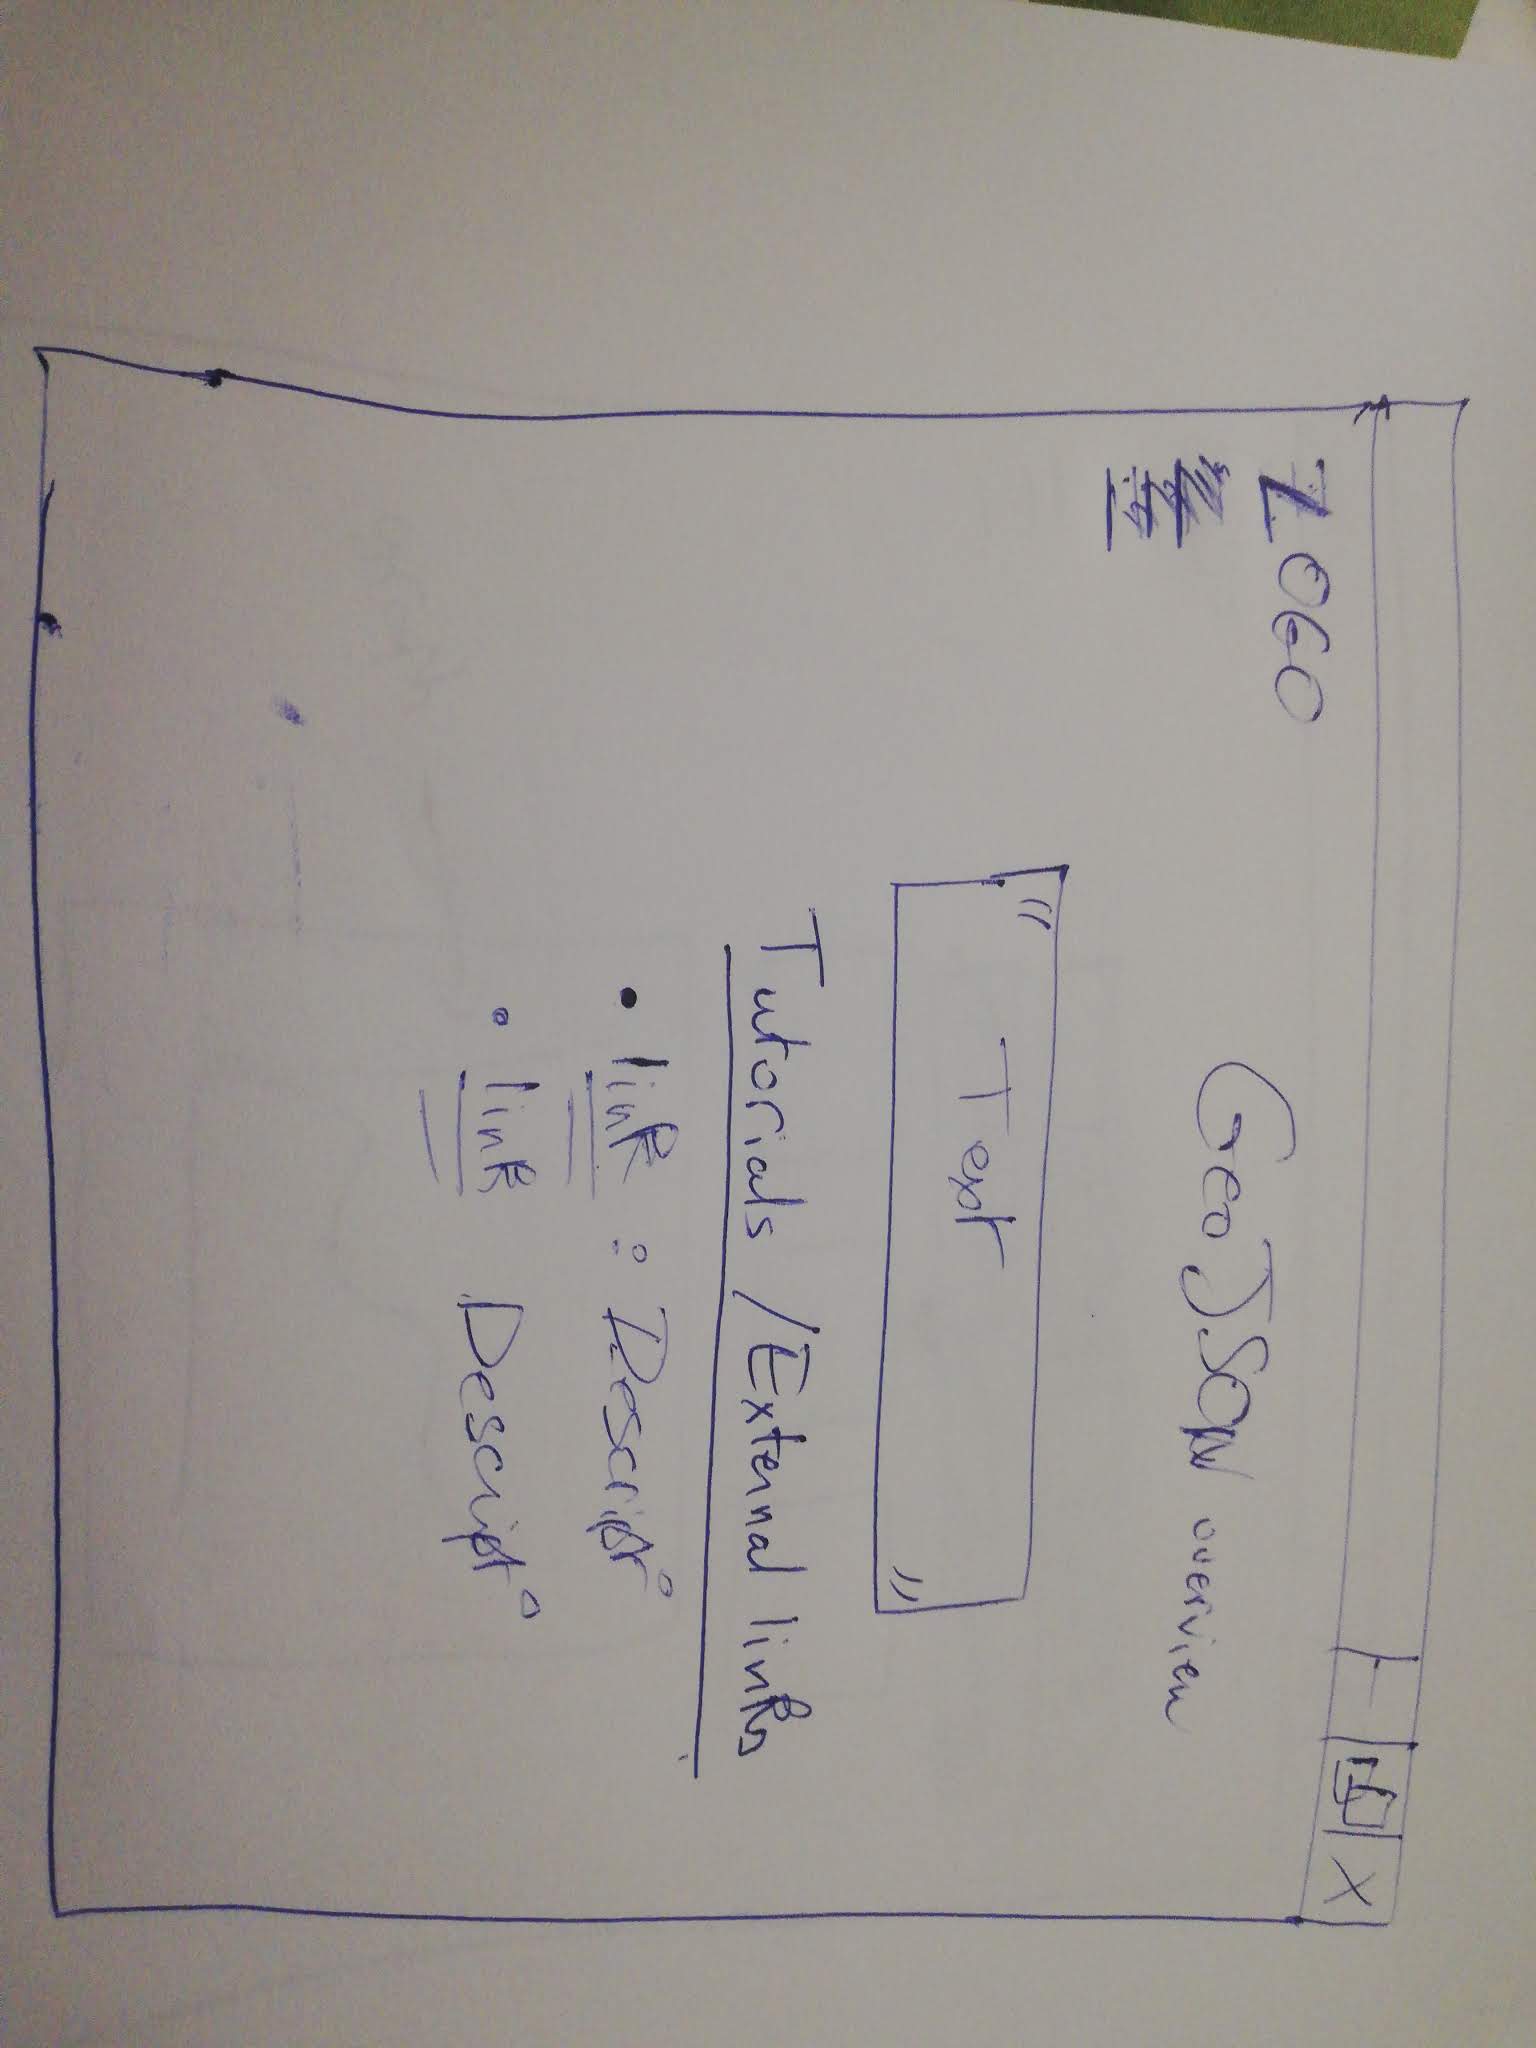 X
LOGO
GeoJSON overview
" Text "
Tutorials / External links
• link : Descript°
• link Descript°